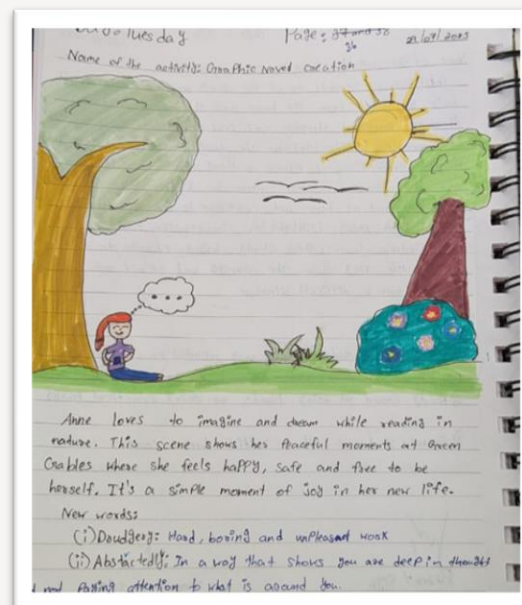 Tuesday Page: 37 and 38 36 21/07/2025
Name of the activity: Graphic Novel creation
Anne loves to imagine and dream while reading in
nature. This scene shows her peaceful moments at Green
Gables where she feels happy, safe and free to be
herself. It's a simple moment of joy in her new life.
New words:
(i) Doudgery: Hard, boring and unpleasant work
(ii) Abstactedly: In a way that shows you are deep in thought
not paying attention to what is around you.